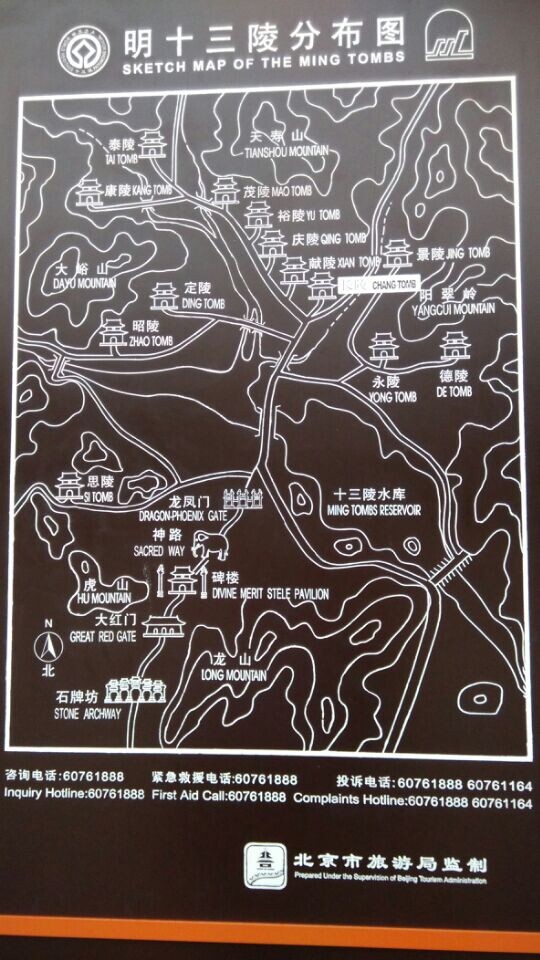 明十三陵分布图
SKETCH MAP OF THE MING TOMBS
泰陵
TAI TOMB
天寿山
TIANSHOU MOUNTAIN
康陵 KANG TOMB
茂陵 MAO TOMB
裕陵 YU TOMB
庆陵 QING TOMB
景陵 JING TOMB
献陵 XIAN TOMB
大峪山
DAYU MOUNTAIN
长陵 CHANG TOMB
定陵
DING TOMB
阳翠岭
YANGCUI MOUNTAIN
昭陵
ZHAO TOMB
永陵
YONG TOMB
德陵
DE TOMB
思陵
SI TOMB
龙凤门
DRAGON-PHOENIX GATE
十三陵水库
MING TOMBS RESERVOIR
神路
SACRED WAY
虎山
HU MOUNTAIN
碑楼
DIVINE MERIT STELE PAVILION
大红门
GREAT RED GATE
N
北
龙山
LONG MOUNTAIN
石牌坊
STONE ARCHWAY
咨询电话:60761888 紧急救援电话:60761888 投诉电话:60761888 60761164
Inquiry Hotline:60761888 First Aid Call:60761888 Complaints Hotline:60761888 60761164
北京市旅游局监制
Prepared Under the Supervision of Beijing Tourism Administration